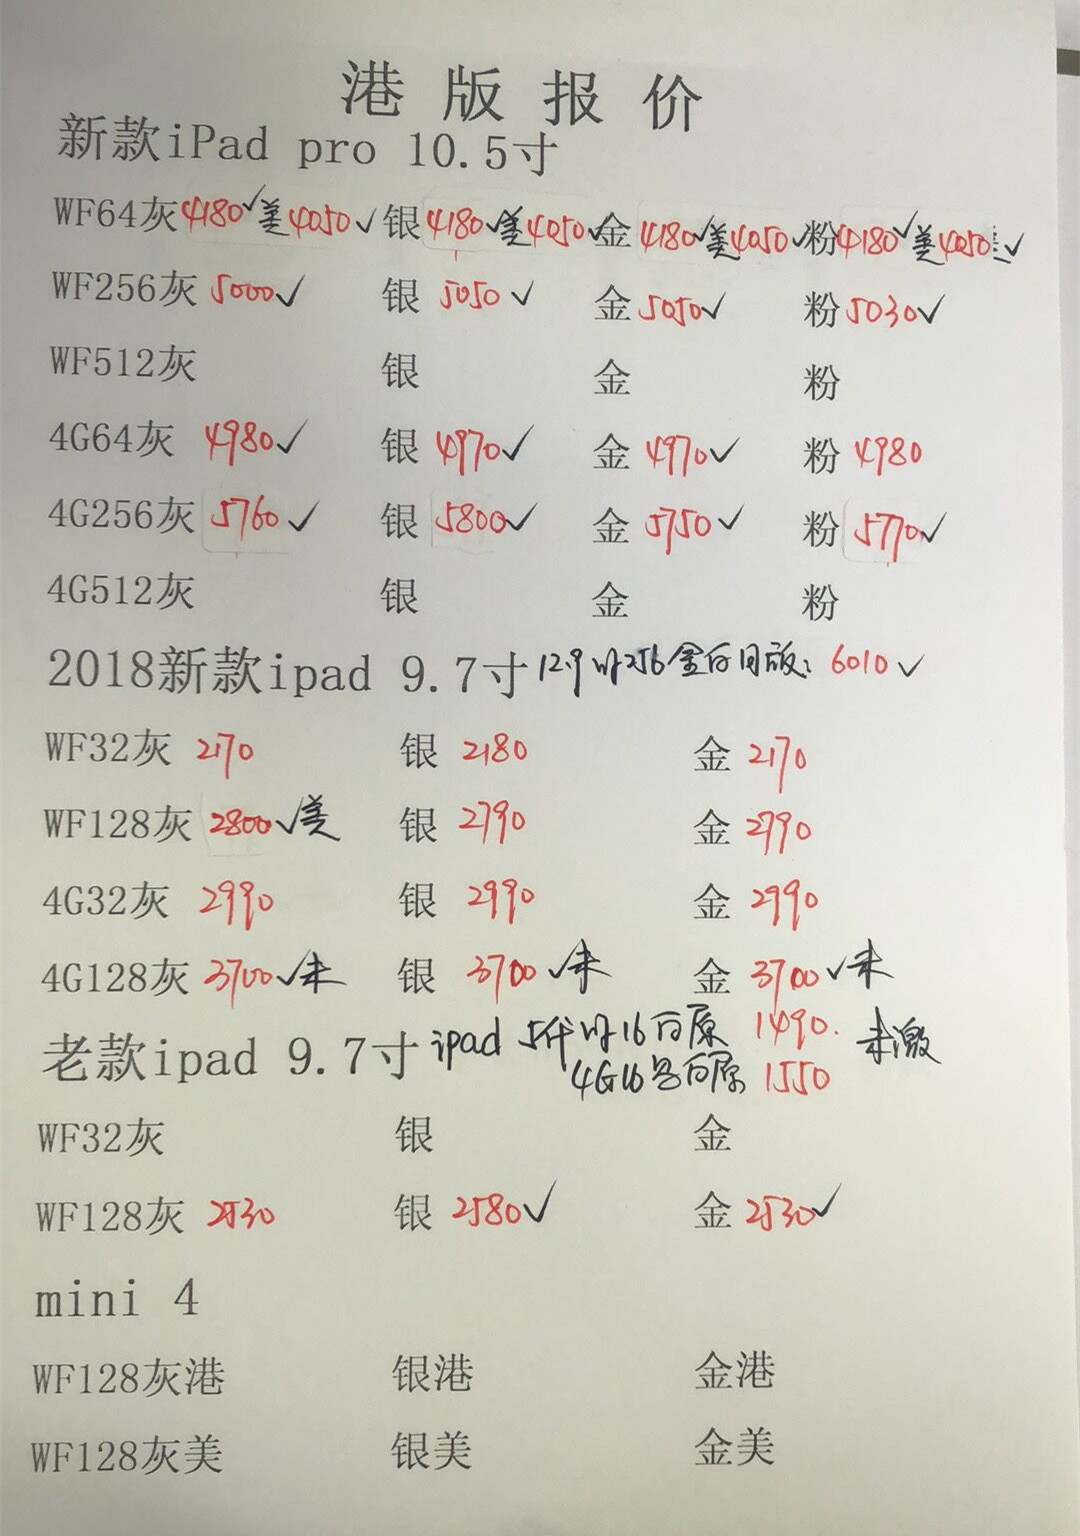 港版报价
新款iPad pro 10.5寸
WF64灰4180✓美4050✓ 银4180✓美4050✓ 金4180✓美4050✓ 粉4180✓美4050✓
WF256灰 5000✓ 银 5050✓ 金 5050✓ 粉 5030✓
WF512灰 银 金 粉
4G64灰 4980✓ 银 4970✓ 金 4970✓ 粉 4980
4G256灰 5760✓ 银 5800✓ 金 5750✓ 粉 5770✓
4G512灰 银 金 粉
2018新款ipad 9.7寸 12.9 256 金 日版: 6010✓
WF32灰 2170 银 2180 金 2170
WF128灰 2800✓美 银 2790 金 2790
4G32灰 2990 银 2990 金 2990
4G128灰 3700✓未 银 3700✓未 金 3700✓未
老款ipad 9.7寸 ipad 5代 16 白原 1490. 未激
4G16 白原 1550
WF32灰 银 金
WF128灰 2530 银 2580✓ 金 2530✓
mini 4
WF128灰港 银港 金港
WF128灰美 银美 金美